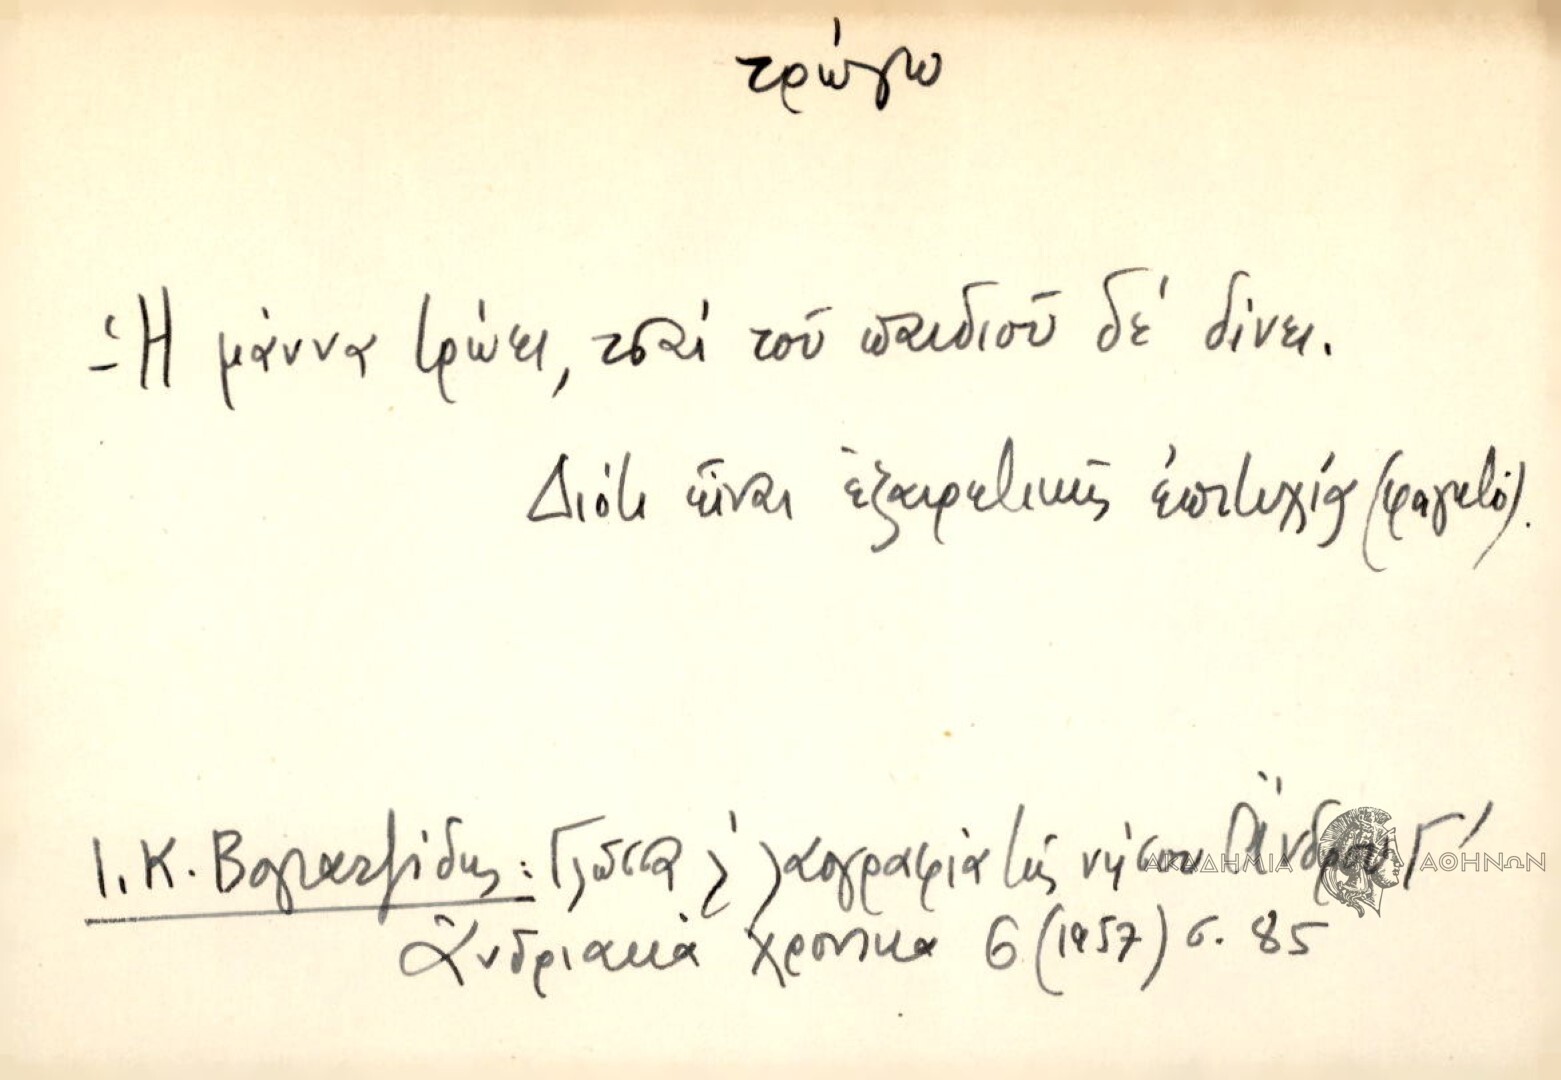 τρώγω
- Ἡ μάννα τρώει, τσαί τοῦ παιδιοῦ δέ δίνει.
Διότι εἶναι ἐξαιρετικῆς ἐπιτυχίας (φαγητό).
Ι. Κ. Βογιατζίδης: Γλῶσσα & λαογραφία τῆς νήσου Ἄνδρου Γ΄
Ἀνδριακά χρονικα 6 (1957) σ. 85
ΑΚΑΔΗΜΙΑ ΑΘΗΝΩΝ